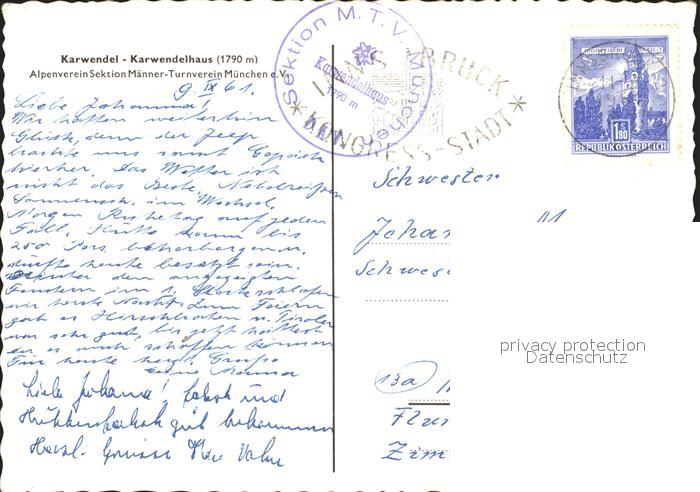 Karwendel - Karwendelhaus (1790 m)
Alpenverein Sektion Männer-Turnverein München e.V.
9. IX 61.
Liebe Johanna!
Wir hatten weiterhin
Glück, denn der Jeep
brachte uns samt Gepäck
hierher. Das Wetter ist
nicht das Beste, Nebelreißen
Sonnensch. im Wechsel.
Morgen Ruhetag auf jeden
Fall. Hütte kann bis
250 Pers. beherbergen u.
dürfte heute besetzt sein.
Hinter den angezeigten
Fenstern im 1. Stock schlafen
wir heute Nacht. Zum Feiern
gab es Hirschbraten u. Tiroler
war sehr gut, bis jetzt
es noch schaffen können
Für heute herzl. Grüße
Liebe Johanna! und
gut bekommen
Herzl. Grüsse Vater
Sektion M.T.V. München
Karwendelhaus
1790 m
INNSBRUCK
KONGRESS-STADT
1.80
REPUBLIK ÖSTERREICH
Schwester
Joha
Schwes
privacy protection
Datenschutz
13a
Zim